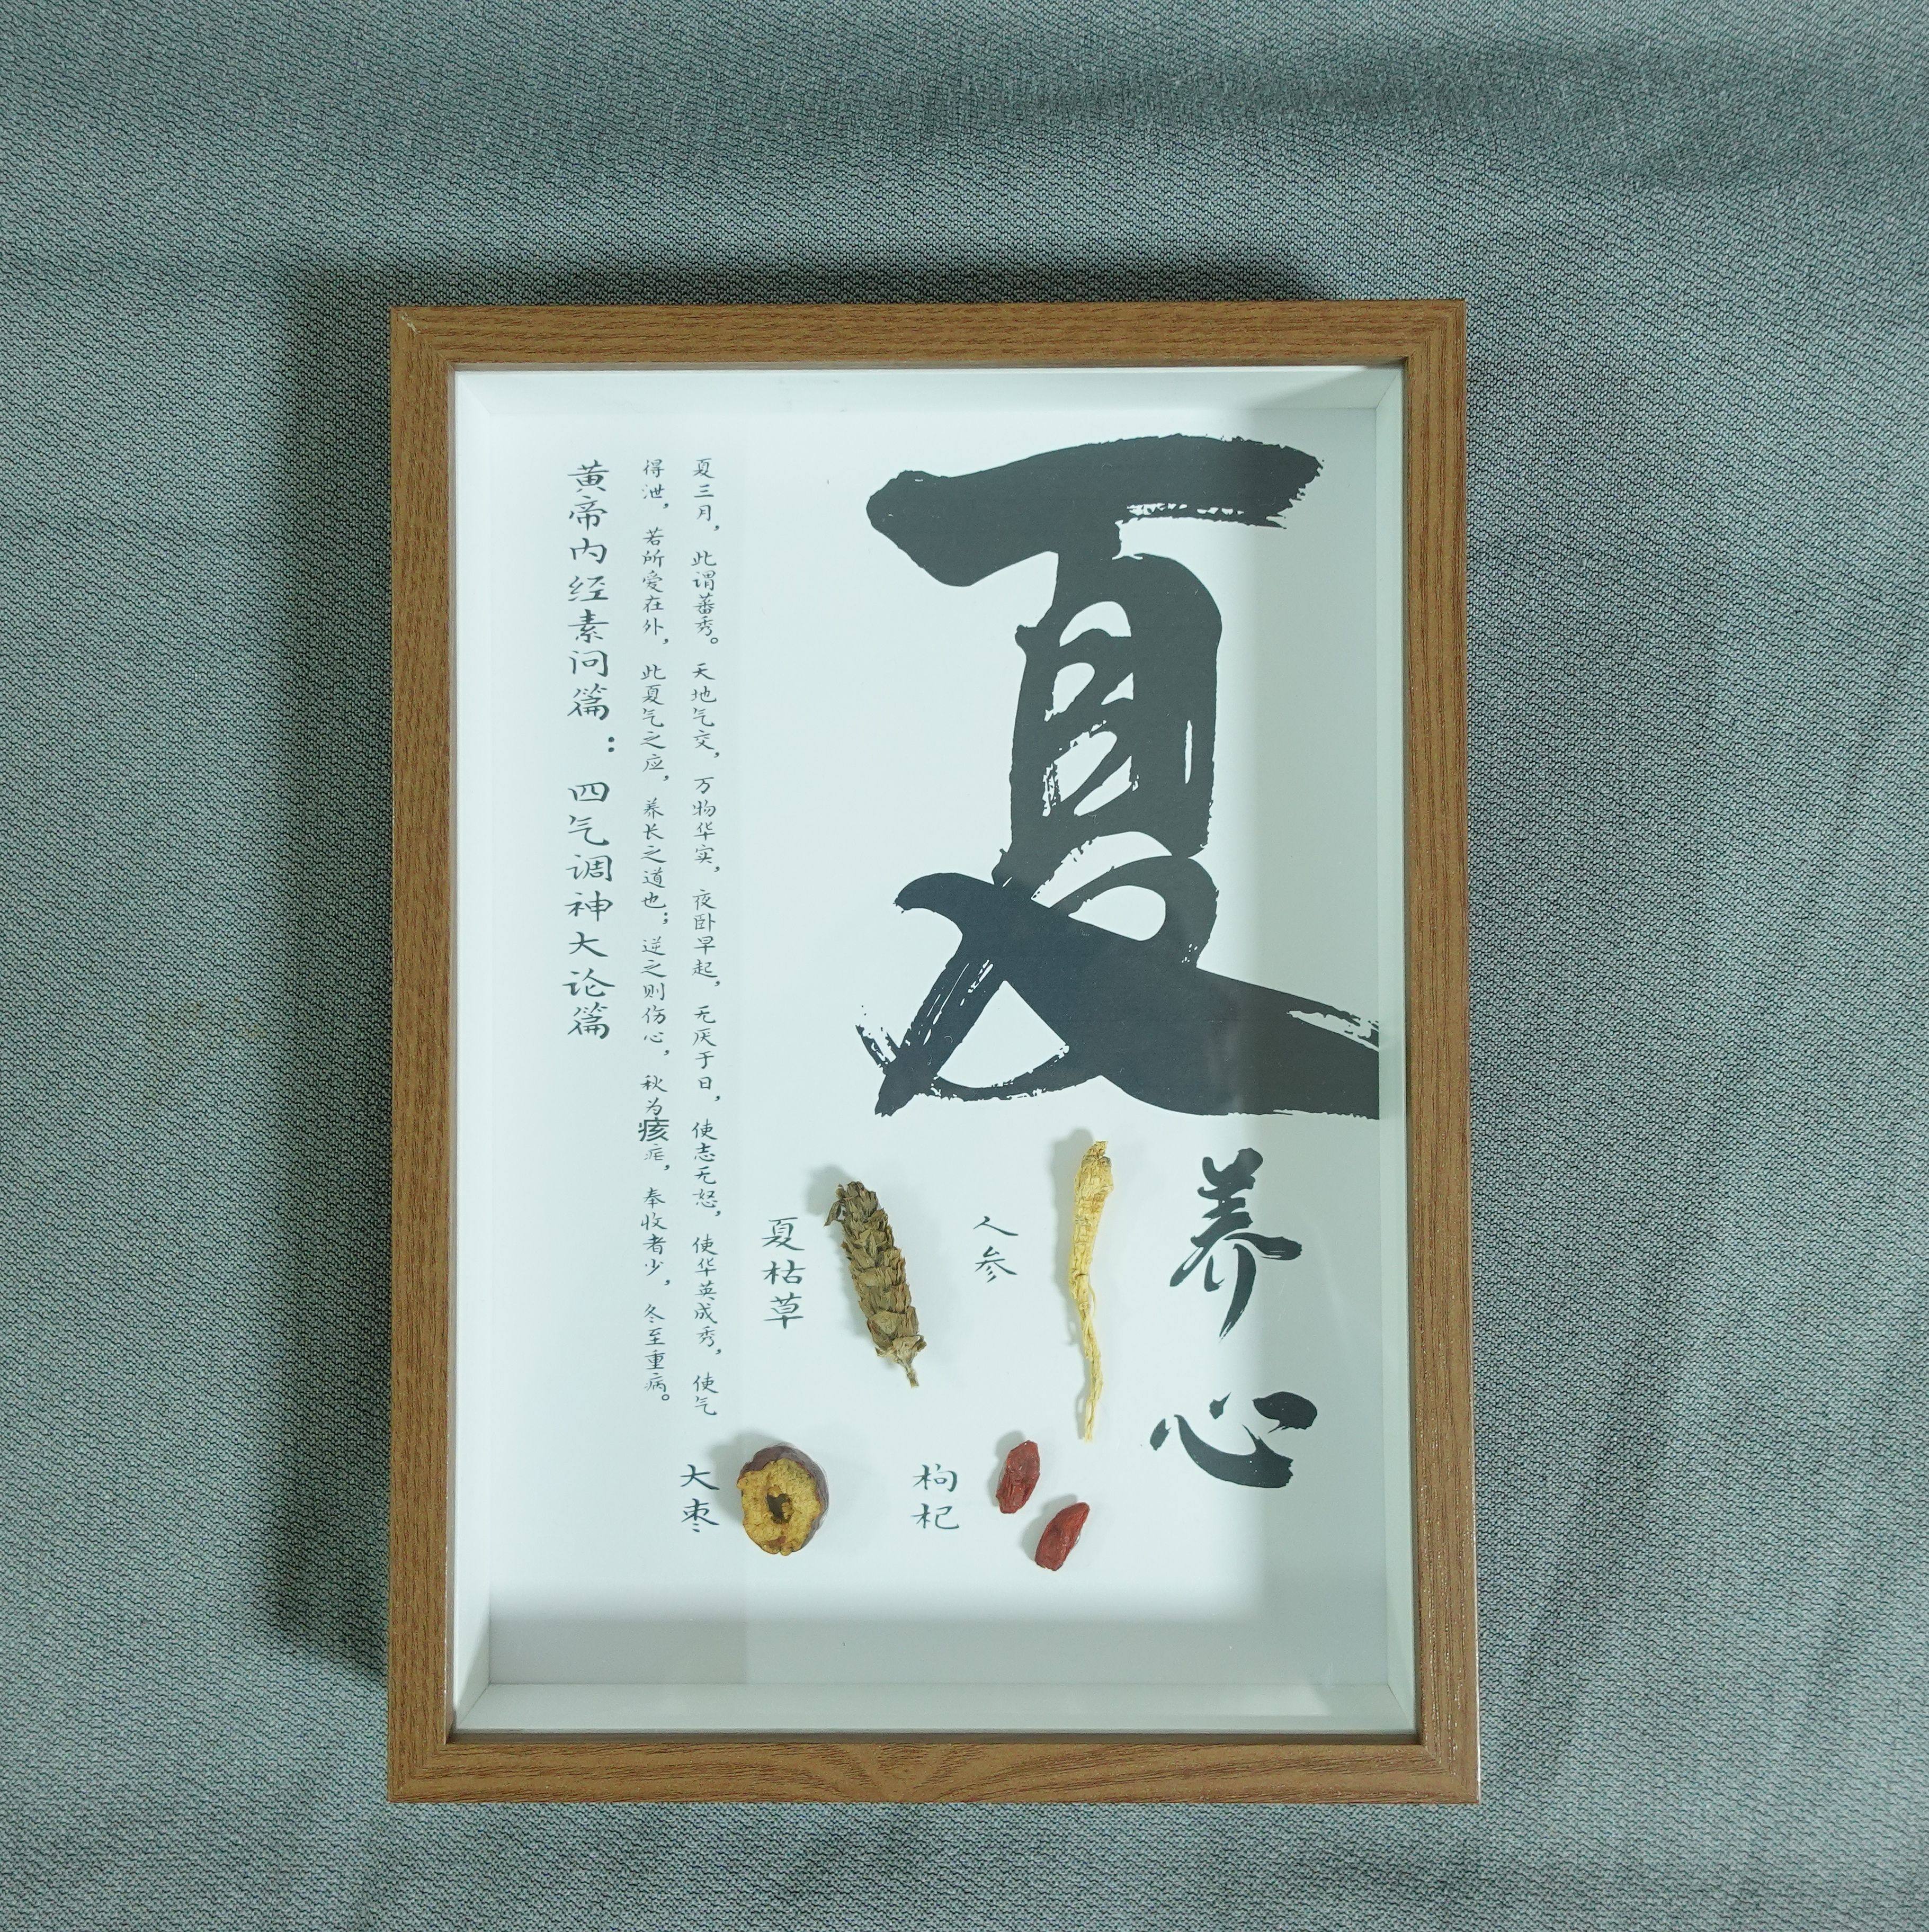 夏
养心
人参
枸杞
夏枯草
大枣
夏三月，此谓蕃秀。天地气交，万物华实，夜卧早起，无厌于日，使志无怒，使华英成秀，使气
得泄，若所爱在外，此夏气之应，养长之道也；逆之则伤心，秋为痎疟，奉收者少，冬至重病。
黄帝内经素问篇：四气调神大论篇